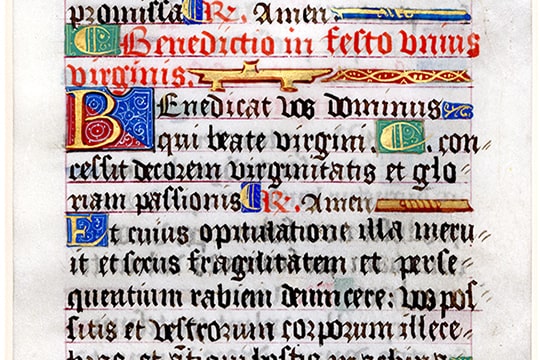 promissa R. Amen.
Benedictio in festo unius
virginis.
BEnedicat vos dominus
qui beate virgini .N. con
cessit decorem virginitatis et glo
riam passionis R. Amen
Et cuius opitulatione illa meru
it et sexus fragilitatem et perse
quentium rabiem deuincere: vos pos
sitis et vestrorum corporum illece
bras et antiqui hostis machina